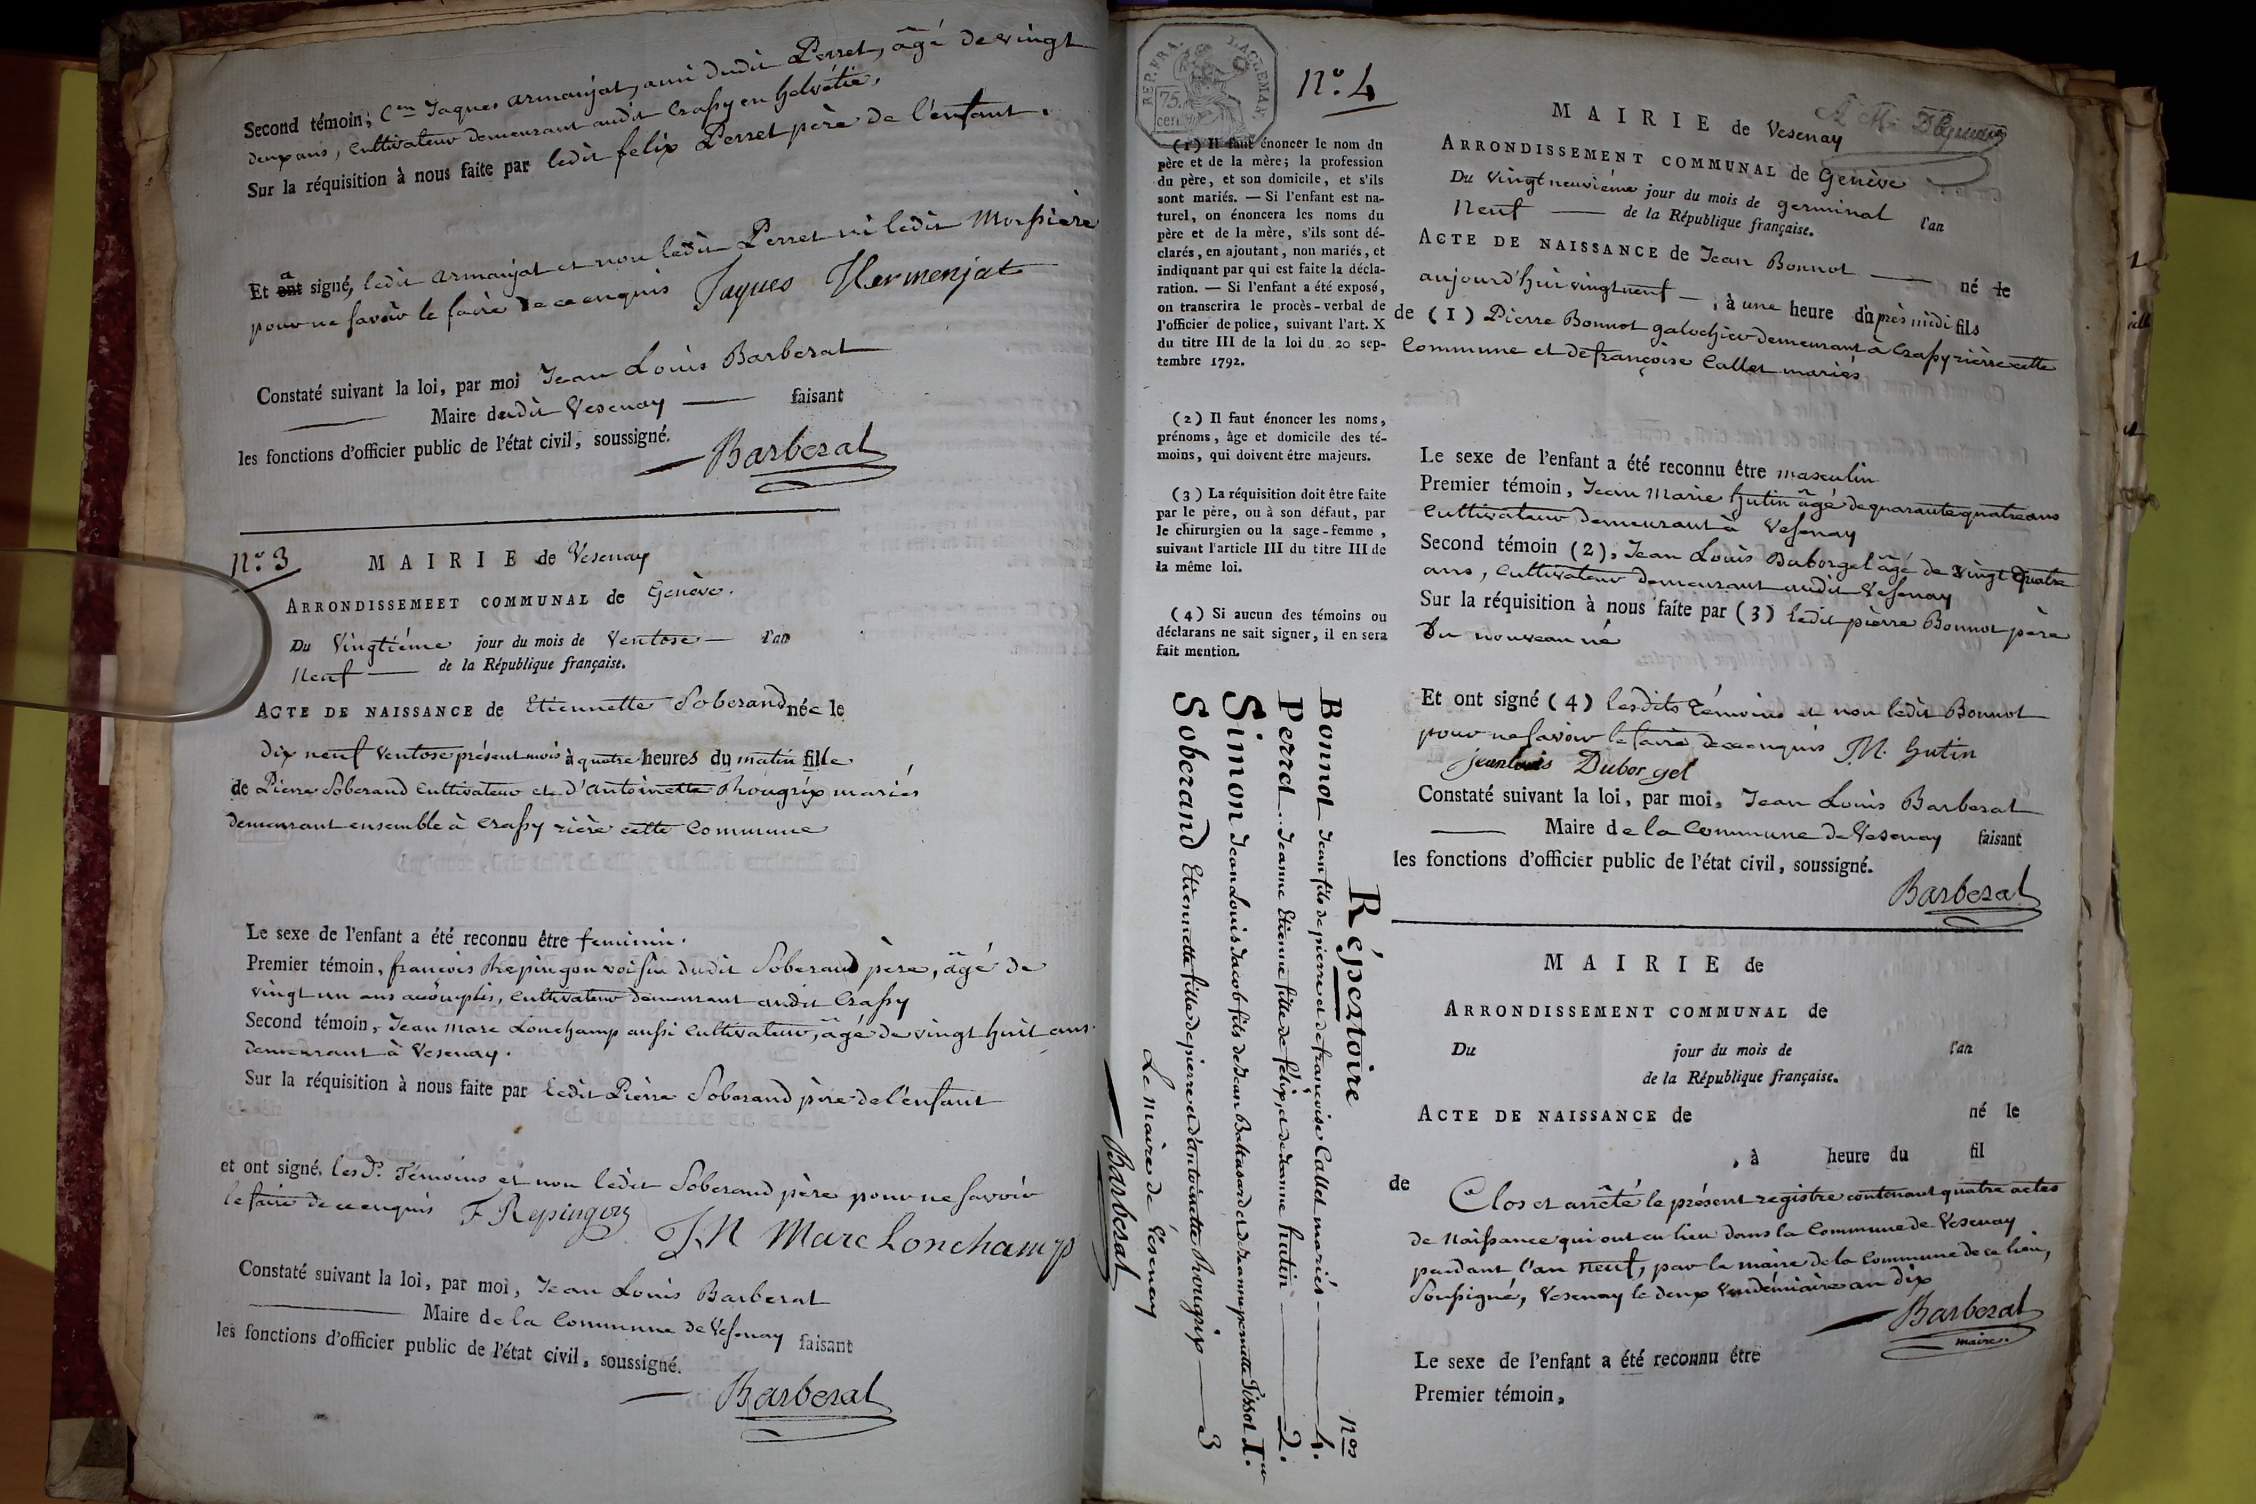 Second témoin, C.en Jaques armanjat, ami dudit Perret, âgé de vingt
deux ans, Cultivateur demeurant audit Crassy en helvétie,
Sur la réquisition à nous faite par ledit felix Perret père de l'enfant.
Et a ont signé, ledit armanjat et non ledit Perret ni ledit
pour ne savoir le faire de ce enquis Jaques Hermenjat
Constaté suivant la loi, par moi Jean Louis Barberat
Maire dudit Vesenay faisant
les fonctions d'officier public de l'état civil, soussigné.
Barberat
N.o 3
MAIRIE de Vesenay
ARRONDISSEMEET COMMUNAL de Genève.
Du Vingtième jour du mois de Ventose l'an
Neuf de la République française.
ACTE DE NAISSANCE de Etiennette Soberand née le
dix neuf Ventose présent mois à quatre heures du matin fille
de Pierre Soberand Cultivateur et d'antoinette Rougrix mariés
demeurant ensemble à Crassy rière cette Commune
Le sexe de l'enfant a été reconnu être feminin.
Premier témoin, francois Repingon voisin dudit Soberand père, âgé de
vingt un ans accomplis, Cultivateur demeurant audit Crassy
Second témoin, Jean Marc Lonchamp aussi Cultivateur, âgé de vingt huit ans
demeurant à Vesenay.
Sur la réquisition à nous faite par ledit Pierre Soberand père de l'enfant
et ont signé. les d.s Témoins et non ledit Soberand père pour ne savoir
le faire de ce enquis F Repingon
J.N Marc Lonchamp
Constaté suivant la loi, par moi, Jean Louis Barberat
Maire de la Commune de Vesenay faisant
les fonctions d'officier public de l'état civil, soussigné.
Barberat
REP. FRA.
75.
cen.
N.o 4
(1) Il faut énoncer le nom du
père et de la mère; la profession
du père, et son domicile, et s'ils
sont mariés. — Si l'enfant est na-
turel, on énoncera les noms du
père et de la mère, s'ils sont dé-
clarés, en ajoutant, non mariés, et
indiquant par qui est faite la décla-
ration. — Si l'enfant a été exposé,
on transcrira le procès-verbal de
l'officier de police, suivant l'art. X
du titre III de la loi du 20 sep-
tembre 1792.
(2) Il faut énoncer les noms,
prénoms, âge et domicile des té-
moins, qui doivent être majeurs.
(3) La réquisition doit être faite
par le père, ou à son défaut, par
le chirurgien ou la sage-femme,
suivant l'article III du titre III de
la même loi.
(4) Si aucun des témoins ou
déclarans ne sait signer, il en sera
fait mention.
Répertoire
N.os
Bonnot Jean fils de pierre et de françoise Callet mariés 4.
Perret Jeanne Etienne fille de félix, et de Jeanne hutin 2.
Simon Jean Louis Jacob fils de Jean Baltasard et de Jeanne pernette Tissot 1.er
Soberand Etiennette fille de pierre et d'antoinette Rougrix 3
Le Maire de Vésenay
Barberat
MAIRIE de Vesenay
ARRONDISSEMENT COMMUNAL de Genève
Du Vingt neuvième jour du mois de germinal l'an
Neuf de la République française.
ACTE DE NAISSANCE de Jean Bonnot né le
aujourd'hui vingt neuf, à une heure d'après midi fils
de (1) Pierre Bonnot galochier demeurant à Crassy rière cette
Commune et de françoise Callet mariés
Le sexe de l'enfant a été reconnu être masculin
Premier témoin, Jean Marie hutin âgé de quarante quatre ans
Cultivateur demeurant à Vesenay
Second témoin (2), Jean Louis Duborgel âgé de vingt quatre
ans, Cultivateur demeurant audit Vesenay
Sur la réquisition à nous faite par (3) ledit pierre Bonnot père
du nouveau né
Et ont signé (4) lesdits témoins et non ledit Bonnot
pour ne savoir le faire de ce enquis J.M. hutin
jean louis Duborgel
Constaté suivant la loi, par moi, Jean Louis Barberat
Maire de la Commune de Vesenay faisant
les fonctions d'officier public de l'état civil, soussigné.
Barberat
MAIRIE de
ARRONDISSEMENT COMMUNAL de
Du jour du mois de l'an
de la République française.
ACTE DE NAISSANCE de né le
, à heure du fil
de
Clos et arrêté le présent registre contenant quatre actes
de Naissance qui ont eu lieu dans la Commune de Vesenay
pendant l'an neuf, par le maire de la Commune de ce lieu,
Soussigné, Vesenay le deux Vendémiaire an dix
Barberat
maire.
Le sexe de l'enfant a été reconnu être
Premier témoin,